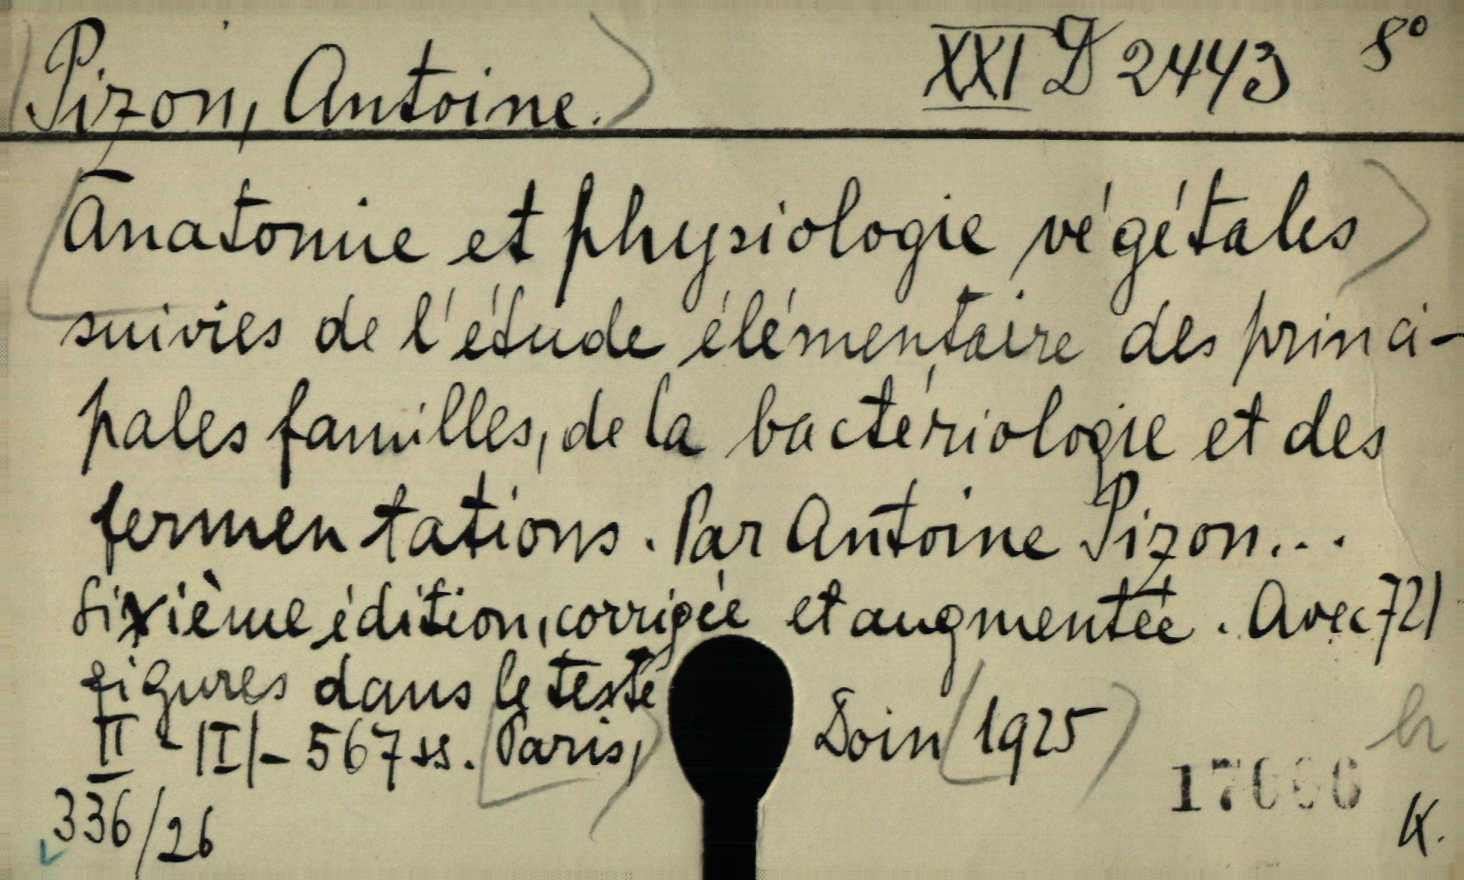 Pizon, Antoine. XXI D 2443 8°
Anatomie et physiologie végétales
suivies de l'étude élémentaire des princi-
pales familles, de la bactériologie et des
fermentations. Par Antoine Pizon...
Sixième édition, corrigée et augmentée. Avec 721
figures dans le texte
II - |I| - 567 ss. Paris, Doin 1925
br
336/26
K.